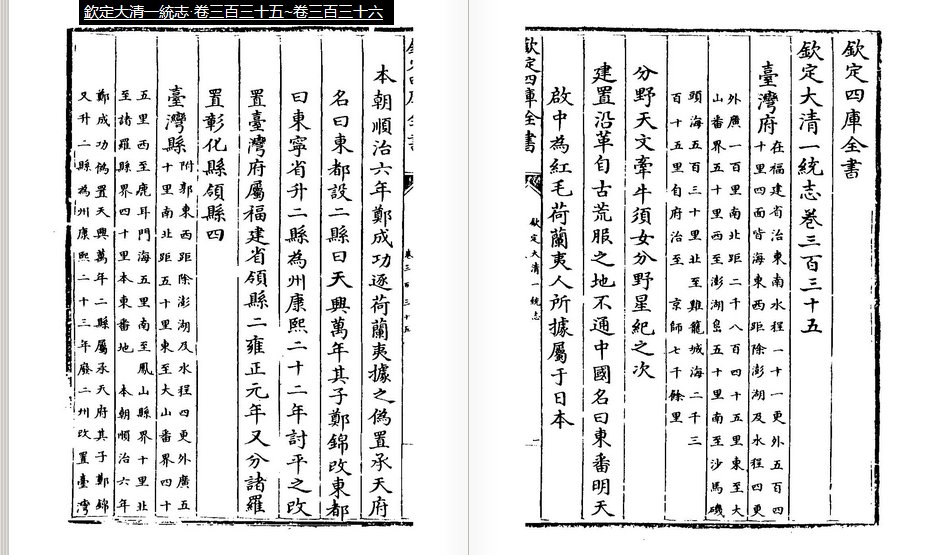 欽定大清一統志·卷三百三十五~卷三百三十六
欽定四庫全書
欽定大清一統志卷三百三十五
臺灣府
在福建省治東南水程一十一更外五百四
十里四面皆海東西距除澎湖及水程四更
外廣一百里南北距二千八百四十五里東至大
山番界五十里西至澎湖島五十里南至沙馬磯
頭海五百三十里北至雞籠城海二千三
百十五里自府治至 京師七千餘里
分野天文牽牛須女分野星紀之次
建置沿革自古荒服之地不通中國名曰東番明天
啟中為紅毛荷蘭夷人所據屬于日本
欽定四庫全書
欽定大清一統志
卷三百三十五
本朝順治六年鄭成功逐荷蘭夷據之偽置承天府
名曰東都設二縣曰天興萬年其子鄭錦攺東都
曰東寧省升二縣為州康熙二十二年討平之攺
置臺灣府屬福建省領縣二雍正元年又分諸羅
置彰化縣領縣四
臺灣縣
附郭東西距除澎湖及水程四更外廣五
十里南北距五十里東至大山番界四十
五里西至鹿耳門海五里南至鳳山縣界十里北
至諸羅縣界四十里本東番地 本朝順治六年
鄭成功偽置天興萬年二縣屬承天府其子鄭錦
又升二縣為州康熙二十三年廢二州攺置臺灣